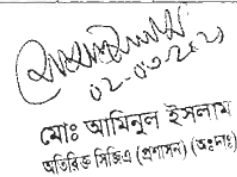 ০২-০৩-২০২১
মোঃ আমিনুল ইসলাম
অতিরিক্ত সিজিএ (প্রশাসন) (অঃদাঃ)